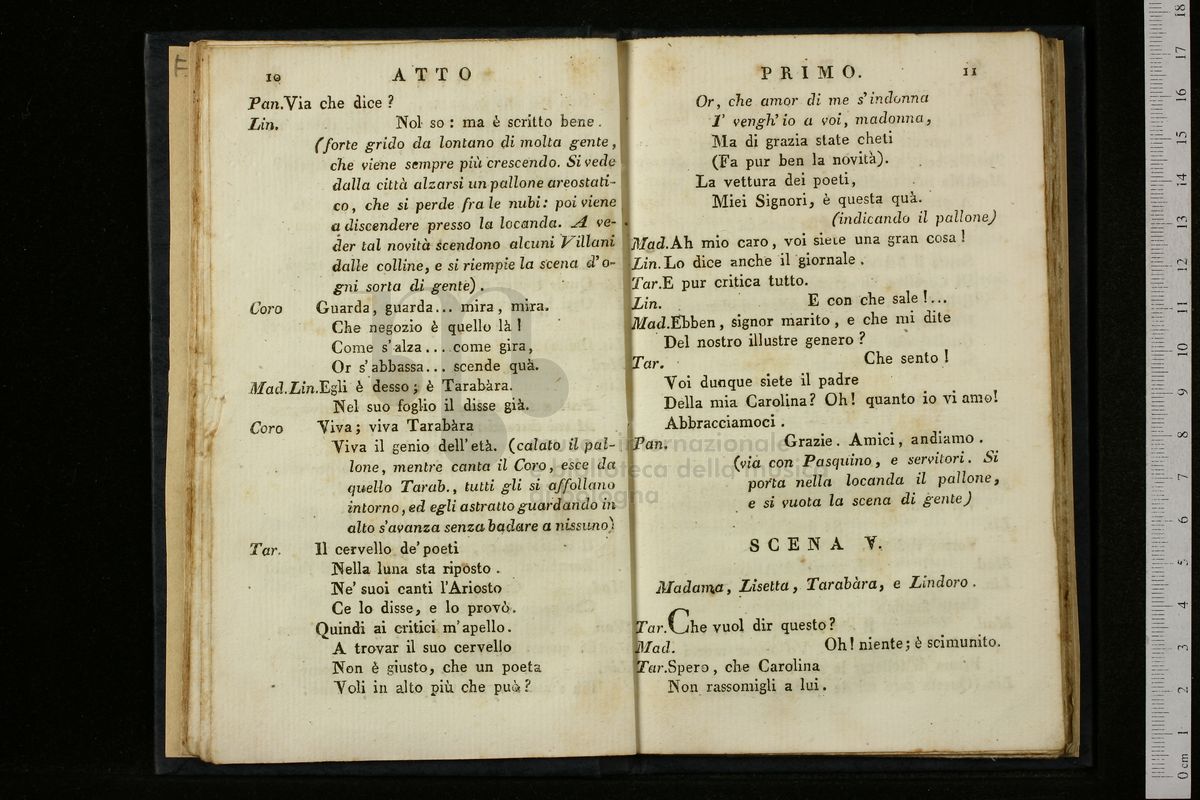 10 ATTO
Pan. Via che dice ?
Lin. Nol so : ma è scritto bene .
(forte grido da lontano di molta gente ,
che viene sempre più crescendo. Si vede
dalla città alzarsi un pallone areostati-
co, che si perde fra le nubi: poi viene
a discendere presso la locanda. A ve-
der tal novità scendono alcuni Villani
dalle colline, e si riempie la scena d' o-
gni sorta di gente) .
Coro Guarda, guarda... mira, mira.
Che negozio è quello là !
Come s'alza... come gira,
Or s'abbassa... scende quà.
Mad.Lin. Egli è desso ; è Tarabàra.
Nel suo foglio il disse già.
Coro Viva ; viva Tarabàra
Viva il genio dell'età. (calato il pal-
lone, mentre canta il Coro, esce da
quello Tarab., tutti gli si affollano
intorno, ed egli astratto guardando in
alto s'avanza senza badare a nissuno)
Tar. Il cervello de' poeti
Nella luna sta riposto .
Ne' suoi canti l'Ariosto
Ce lo disse, e lo provò.
Quindi ai critici m'apello.
A trovar il suo cervello
Non è giusto, che un poeta
Voli in alto più che può ?
PRIMO. 11
Or, che amor di me s'indonna
I' vengh' io a voi, madonna,
Ma di grazia state cheti
(Fa pur ben la novità).
La vettura dei poeti,
Miei Signori, è questa quà.
(indicando il pallone)
Mad. Ah mio caro, voi siete una gran cosa !
Lin. Lo dice anche il giornale .
Tar. E pur critica tutto.
Lin. E con che sale !...
Mad. Ebben, signor marito, e che mi dite
Del nostro illustre genero ?
Tar. Che sento !
Voi dunque siete il padre
Della mia Carolina ? Oh! quanto io vi amo!
Abbracciamoci .
Pan. Grazie . Amici, andiamo .
(via con Pasquino, e servitori. Si
porta nella locanda il pallone,
e si vuota la scena di gente)
SCENA V.
Madama, Lisetta, Tarabàra, e Lindoro .
Tar. Che vuol dir questo ?
Mad. Oh! niente; è scimunito.
Tar. Spero, che Carolina
Non rassomigli a lui .